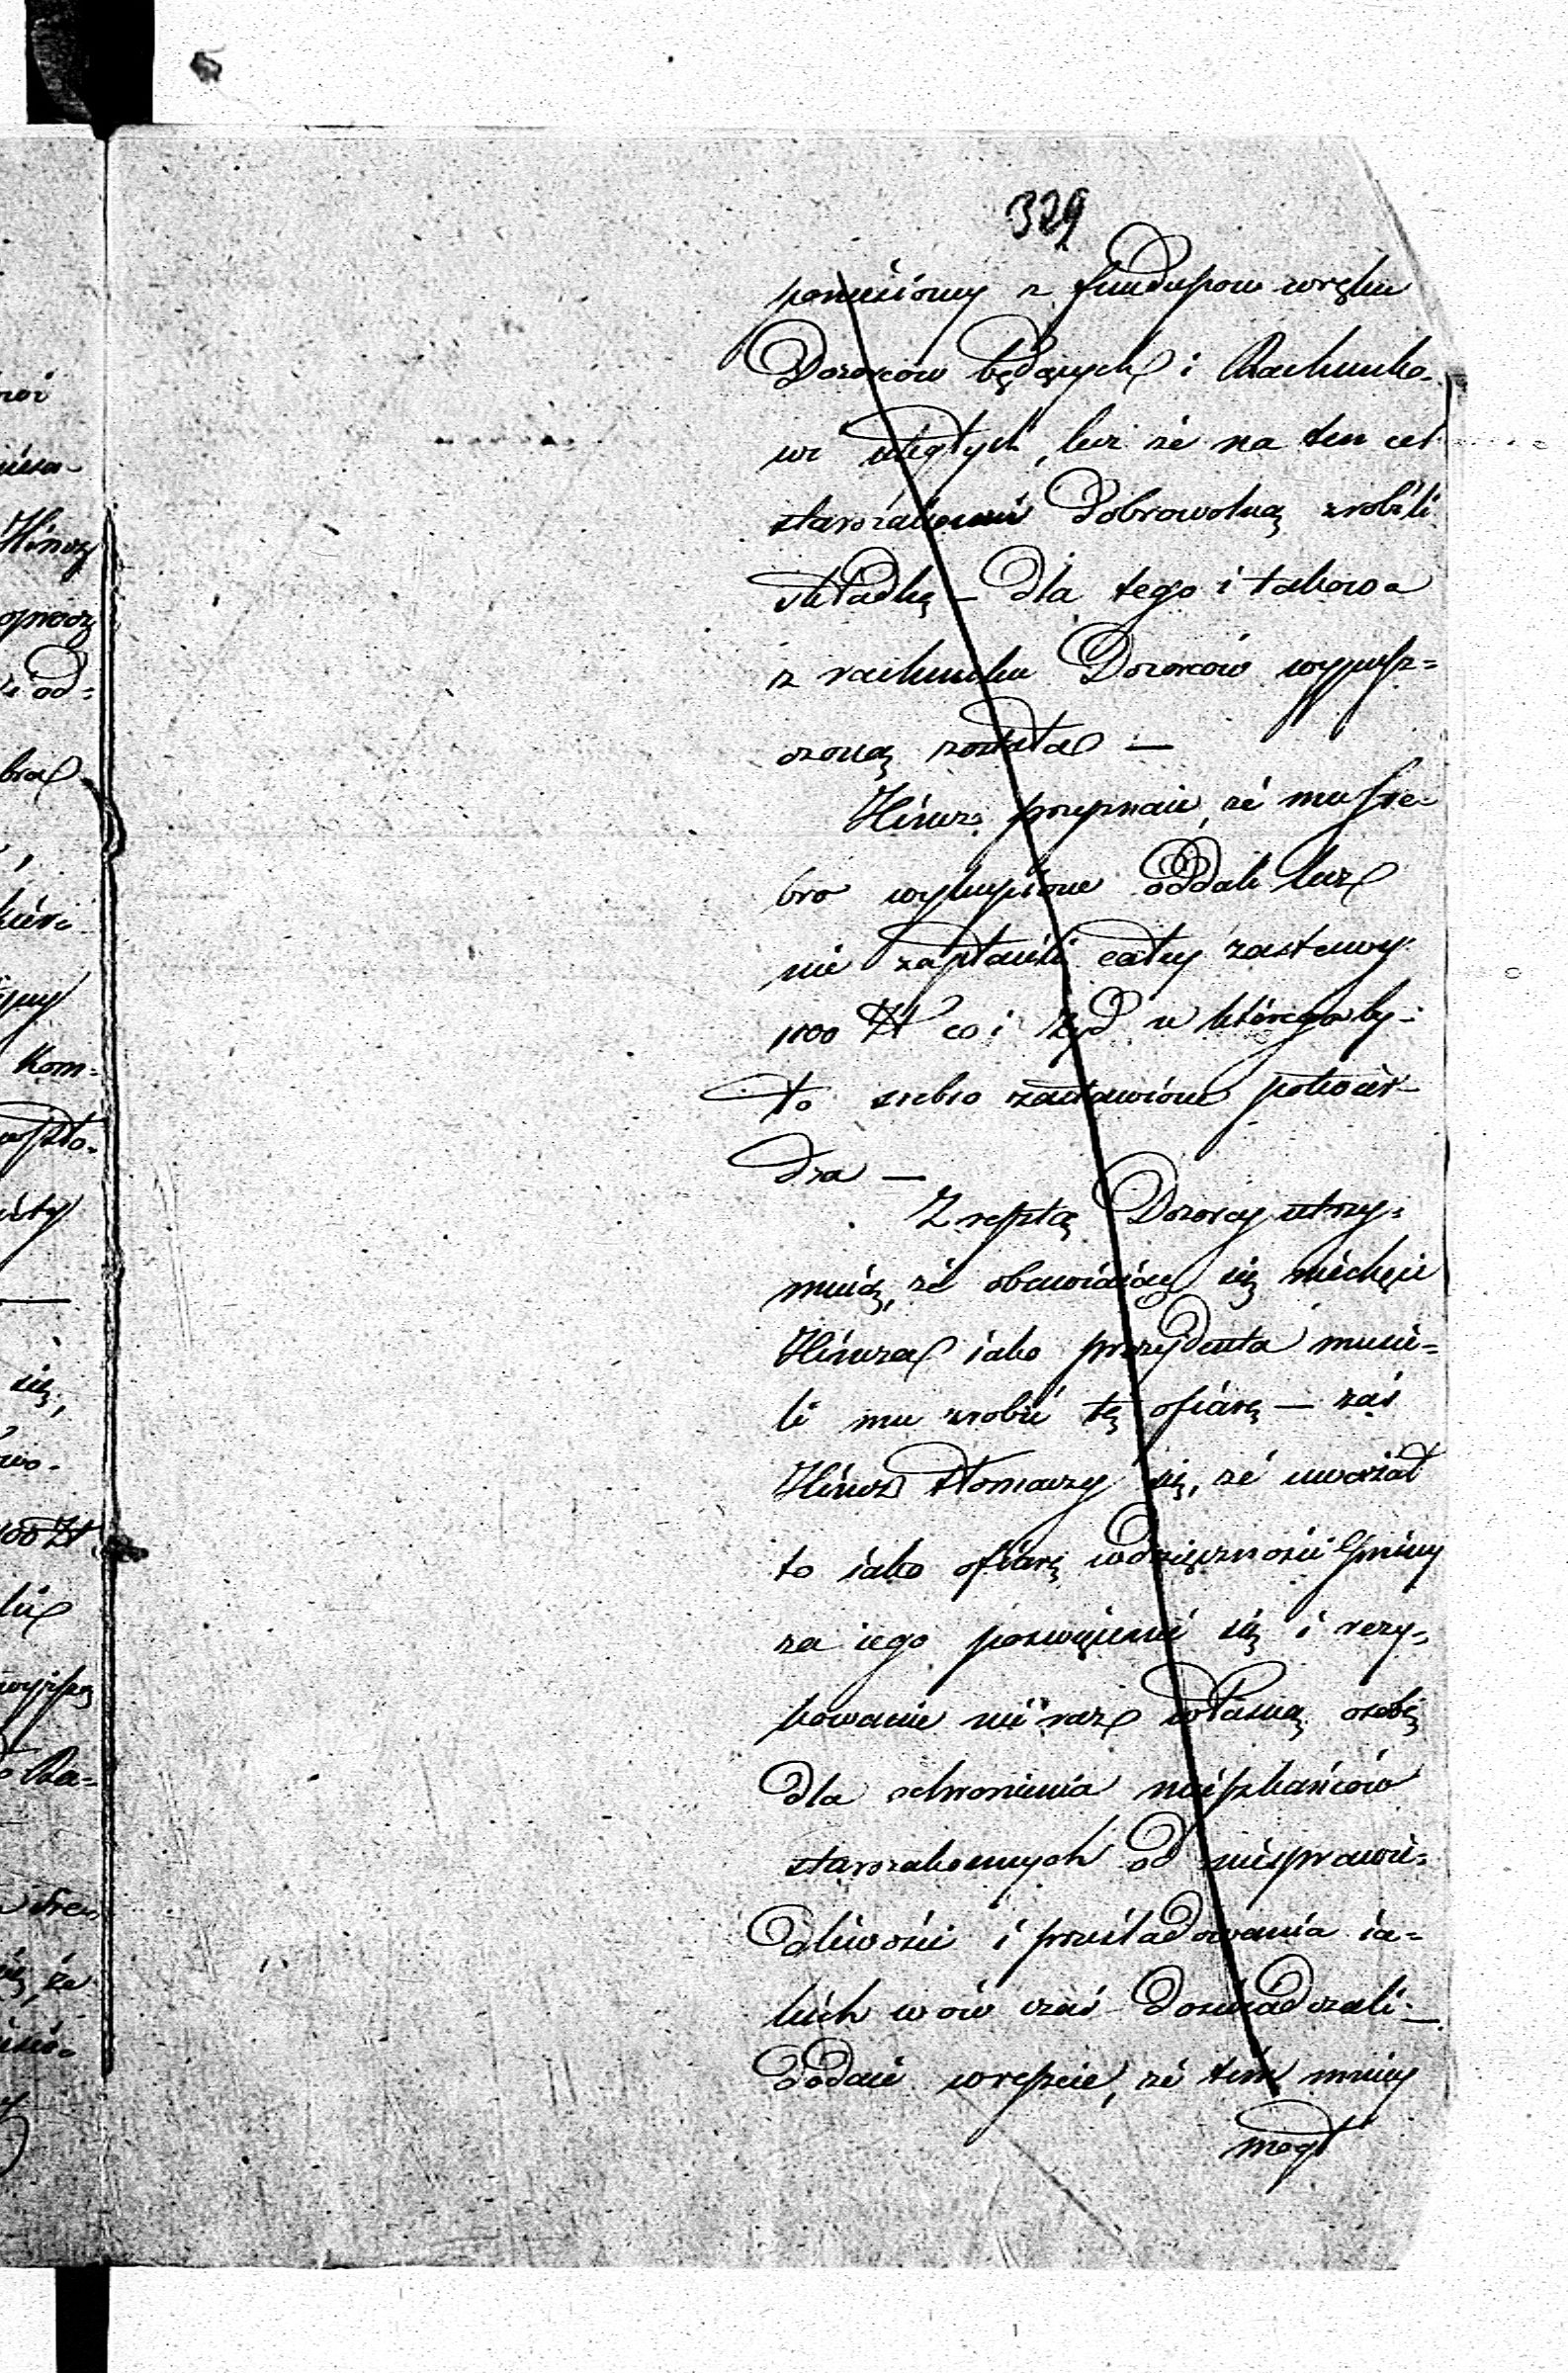 329
poniesiony z funduszow wręku
Dozorców będących i Rachunko-
wi uległych, lecz że na ten cel
starozakonni Dobrowolną zrobili
składkę — dla tego i takowa
z rachunku Dozorców wypusz=
czoną została —
Hincz przyznaie, że mu sre-
bro wykupione oddali lecz
nie zapłacili całey zastawy
1100 Zł co i Żyd u którego by-
ło srebro zastawione potwier-
dza —
Z resztą Dozorcy utrzy=
muią, że obawiaiąc się niechęci
Hincza iako prezydenta musie=
li mu zrobić tę ofiarę — zaś
Hincz tłomaczy się, że uważał
to iako ofiarę wdzięczności Gminy
za iego poswięcenie się i rezy=
kowanie nie raz własną osobę
dla ochronienia mieszkańców
starozakonnych od niesprawie=
dliwości i prześladowania ia=
kich w ów czas doswiadczali —
dodaie wreszcie, że tém mniey
mogł
nos
Hincz
oprocz
i od=
bra
Kom=
się,
100 Zł
Ra=
że